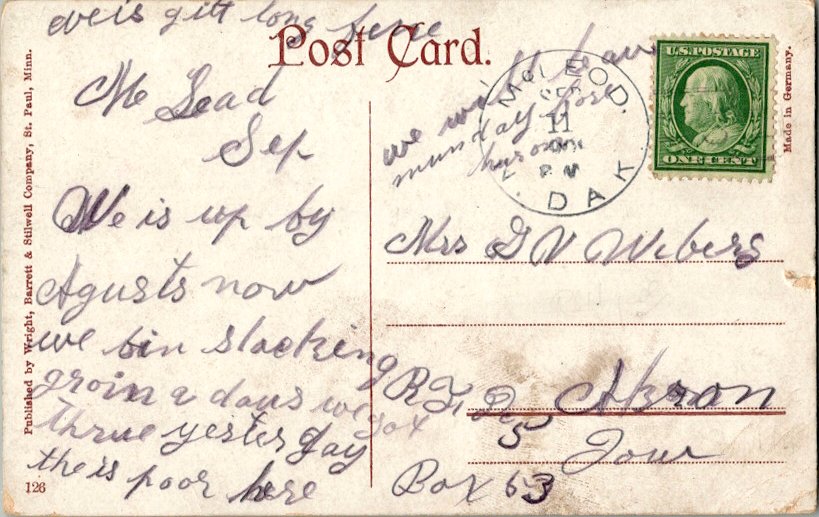 eveis gitt long here
Post Card.
Mc Lead
Sep
We is up by
Agusts now
we bin stacking
groin 2 days we got
thrue yesterday
the is poor here
we will leave
munday fore
huron
McLEOD
SEP
11
PM
DAK.
U.S. POSTAGE
ONE CENT
Mrs G V Webers
R.F. D 5 Akron
Iowr
Box 63
Published by Wright, Barrett & Stilwell Company, St. Paul, Minn.
Made in Germany.
126